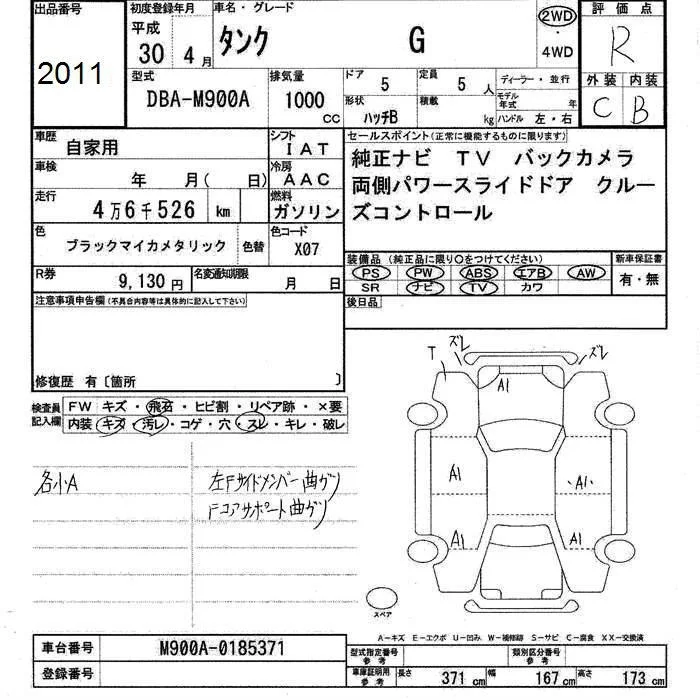 出品番号
2011
初度登録年月
平成
30 4月
車名・グレード
タンク G
2WD
・
4WD
評価点
R
外装 内装
C B
型式
DBA-M900A
排気量
1000
CC
ドア 5
定員 5 人
形状 ハッチB
積載 kg
ディーラー・並行
モデル年式 年
ハンドル 左・右
車歴 自家用
シフト IAT
車検 年 月( 日)
冷房 AAC
走行 4万6千526 km
燃料 ガソリン
色 ブラックマイカメタリック 色替
色コード X07
R券 9,130円
名変通知期限 月 日
セールスポイント(正常に機能するものに限ります)
純正ナビ TV バックカメラ
両側パワースライドドア クルー
ズコントロール
装備品(純正品に限り○をつけてください)
PS PW ABS エアB AW
SR ナビ TV カワ
新車保証書
有・無
後日品
注意事項申告欄(不具合内容等は具体的に記入して下さい)
修復歴 有〔箇所 〕
検査員
記入欄
FW キズ・飛石・ヒビ割・リペア跡・×要
内装 キズ・汚レ・コゲ・穴・スレ・キレ・破レ
各小A
左Fサイドメンバー曲ガリ
Fコアサポート曲ガリ
T ズレ ズレ
A1
A1 A1
A1 A1
スペア
A-キズ E-エクボ U-凹み W-補修跡 S-サビ C-腐食 XX-交換済
車台番号 M900A-0185371
登録番号
型式指定番号
参考
類別区分番号
参考
車庫証明用
参考
長さ 371 cm 幅 167 cm 高さ 173 cm